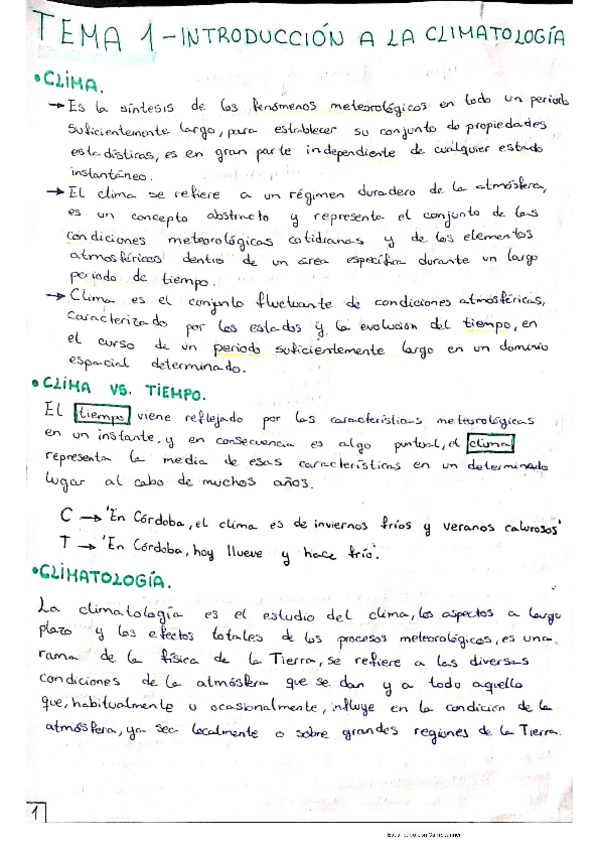 TEMA 1 - INTRODUCCIÓN A LA CLIMATOLOGÍA
• CLIMA.
→ Es la síntesis de los fenómenos meteorológicos en todo un periodo
suficientemente largo, para establecer su conjunto de propiedades
estadísticas, es en gran parte independiente de cualquier estado
instantáneo.
→ El clima se refiere a un régimen duradero de la atmósfera,
es un concepto abstracto y representa el conjunto de las
condiciones meteorológicas cotidianas y de los elementos
atmosféricos dentro de un área específica durante un largo
periodo de tiempo.
→ Clima es el conjunto fluctuante de condiciones atmosféricas,
caracterizado por los estados y la evolución del tiempo, en
el curso de un periodo suficientemente largo en un dominio
espacial determinado.
• CLIMA VS. TIEMPO.
El tiempo viene reflejado por las características meteorológicas
en un instante, y en consecuencia es algo puntual, el clima
representa la media de esas características en un determinado
lugar al cabo de muchos años.
C → 'En Córdoba, el clima es de inviernos fríos y veranos calurosos'
T → 'En Córdoba, hoy llueve y hace frío'.
• CLIMATOLOGÍA.
La climatología es el estudio del clima, los aspectos a largo
plazo y los efectos totales de los procesos meteorológicos, es una
rama de la física de la Tierra, se refiere a las diversas
condiciones de la atmósfera que se dan y a todo aquello
que, habitualmente u ocasionalmente, influye en la condición de la
atmósfera, ya sea localmente o sobre grandes regiones de la Tierra.
1